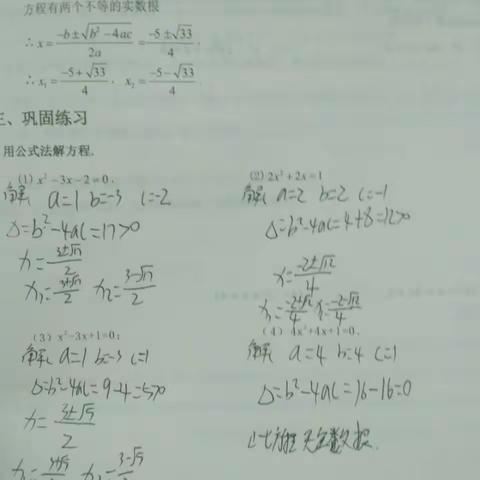 方程有两个不等的实数根
∴ x = (-b±√(b²-4ac))/(2a) = (-5±√33)/4
∴ x₁ = (-5+√33)/4, x₂ = (-5-√33)/4
三、巩固练习
用公式法解方程.
(1) x²-3x-2=0;
解: a=1 b=-3 c=-2
Δ=b²-4ac=17>0
x=(3±√17)/2
x₁=(3+√17)/2 x₂=(3-√17)/2
(2) 2x²+2x=1
解: a=2 b=2 c=-1
Δ=b²-4ac=4+8=12>0
x=(-2±√12)/4
x₁=(-2+√12)/4 x=(-2-√12)/4
(3) x²-3x+1=0;
解: a=1 b=-3 c=1
Δ=b²-4ac=9-4=5>0
x=(3±√5)/2
x₁=(3+√5)/2 x₂=(3-√5)/2
(4) 4x²+4x+1=0.
解: a=4 b=4 c=1
Δ=b²-4ac=16-16=0
此方程无实数根.